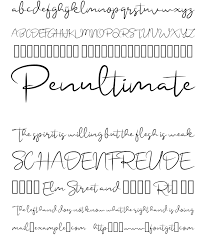 abcdefghijklmnopqrstuvwxyz
ABCDEFGHIJKLMNOPQRSTUVWXYZ
Penultimate
The spirit is willing but the flesh is weak
SCHADENFREUDE
Elm Street and Rd
The left hand does not know what the right hand is doing
mail example com http www fontgit com